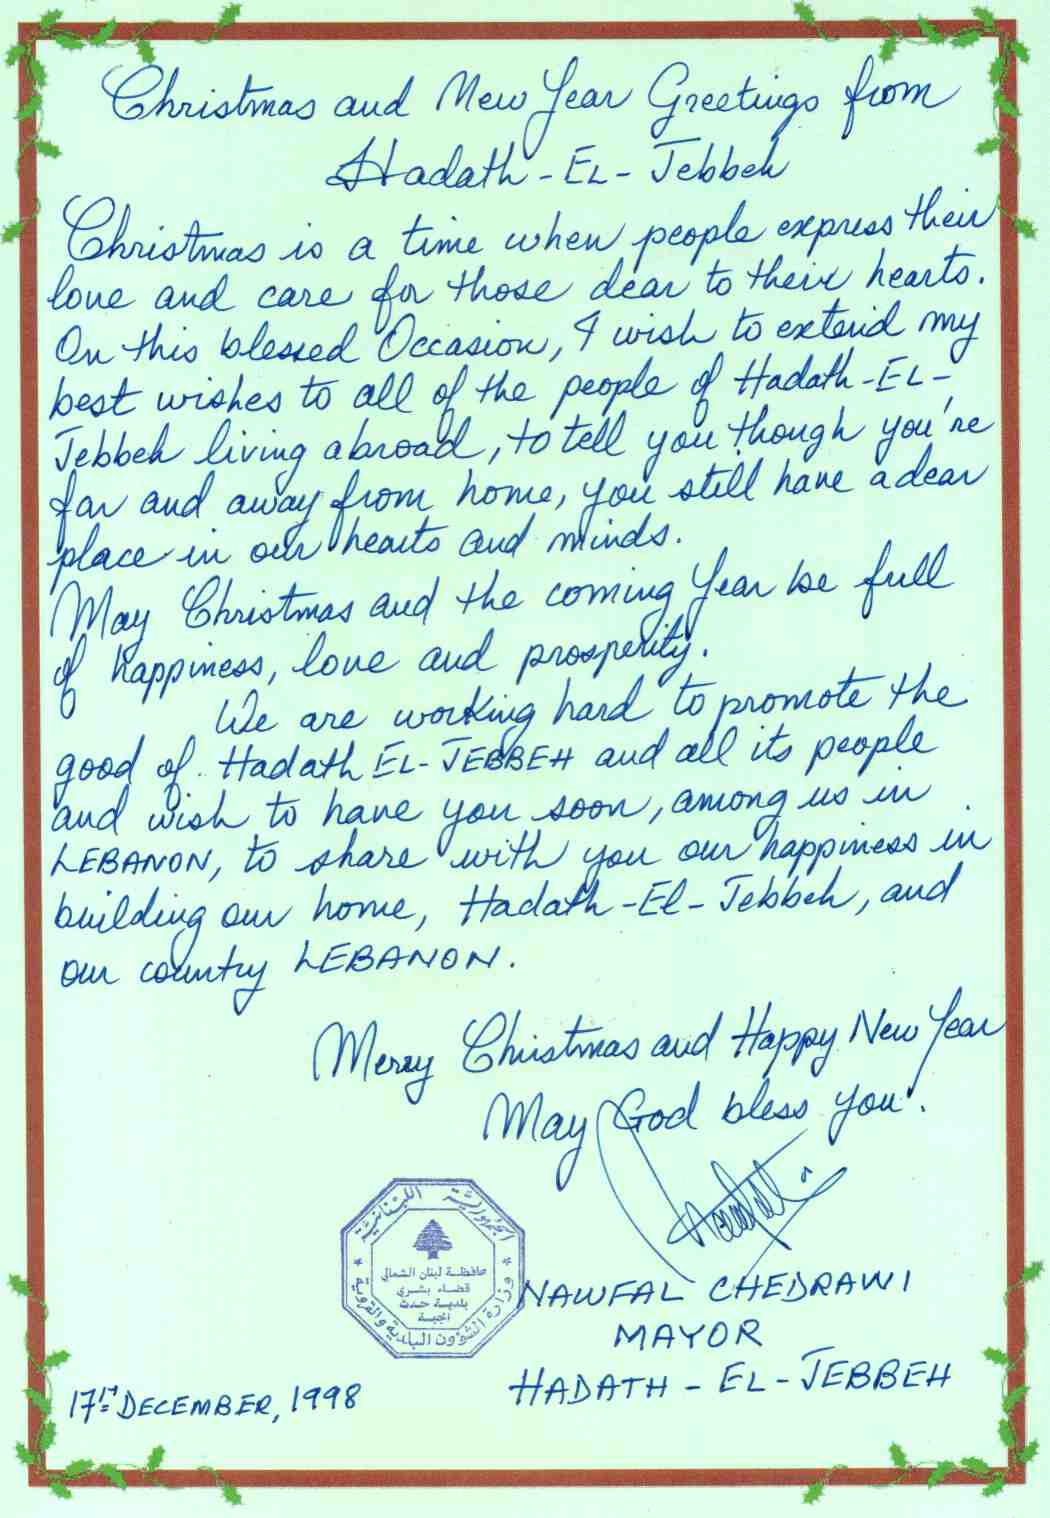 Christmas and New Year Greetings from
Hadath-EL-Jebbeh
Christmas is a time when people express their
love and care for those dear to their hearts.
On this blessed Occasion, I wish to extend my
best wishes to all of the people of Hadath-EL-
Jebbeh living abroad, to tell you though you're
far and away from home, you still have a dear
place in our hearts and minds.
May Christmas and the coming Year be full
of happiness, love and prosperity.
We are working hard to promote the
good of Hadath EL-JEBBEH and all its people
and wish to have you soon, among us in
LEBANON, to share with you our happiness in
building our home, Hadath-El-Jebbeh, and
our country LEBANON.
Merry Christmas and Happy New Year
May God bless you.
الجمهورية اللبنانية
محافظة لبنان الشمالي
قضاء بشري
بلدية حدث
الجبة
وزارة الشؤون البلدية والقروية
NAWFAL CHEDRAWI
MAYOR
HADATH-EL-JEBBEH
17 DECEMBER, 1998